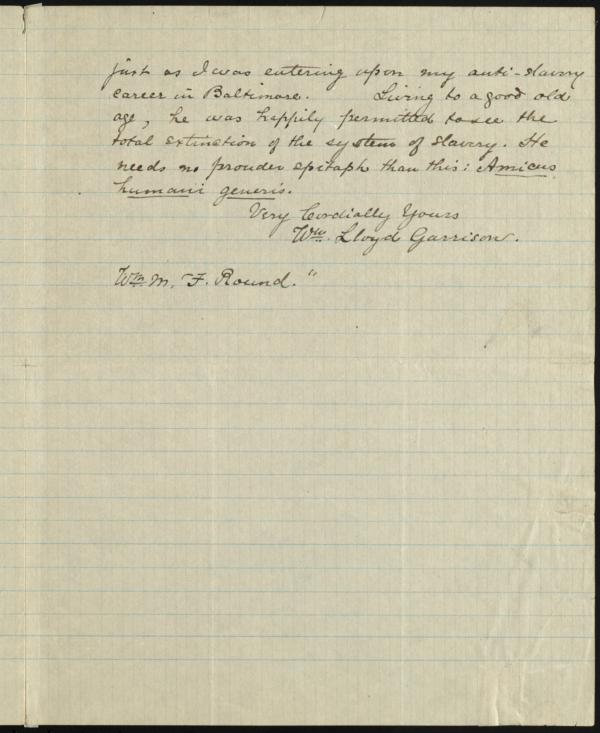 just as I was entering upon my anti-slavery
career in Baltimore. Living to a good old
age, he was happily permitted to see the
total extinction of the system of slavery. He
needs no prouder epitaph than this: Amicus
humani generis.
Very Cordially Yours
Wm. Lloyd Garrison.
Wm. M. F. Round."